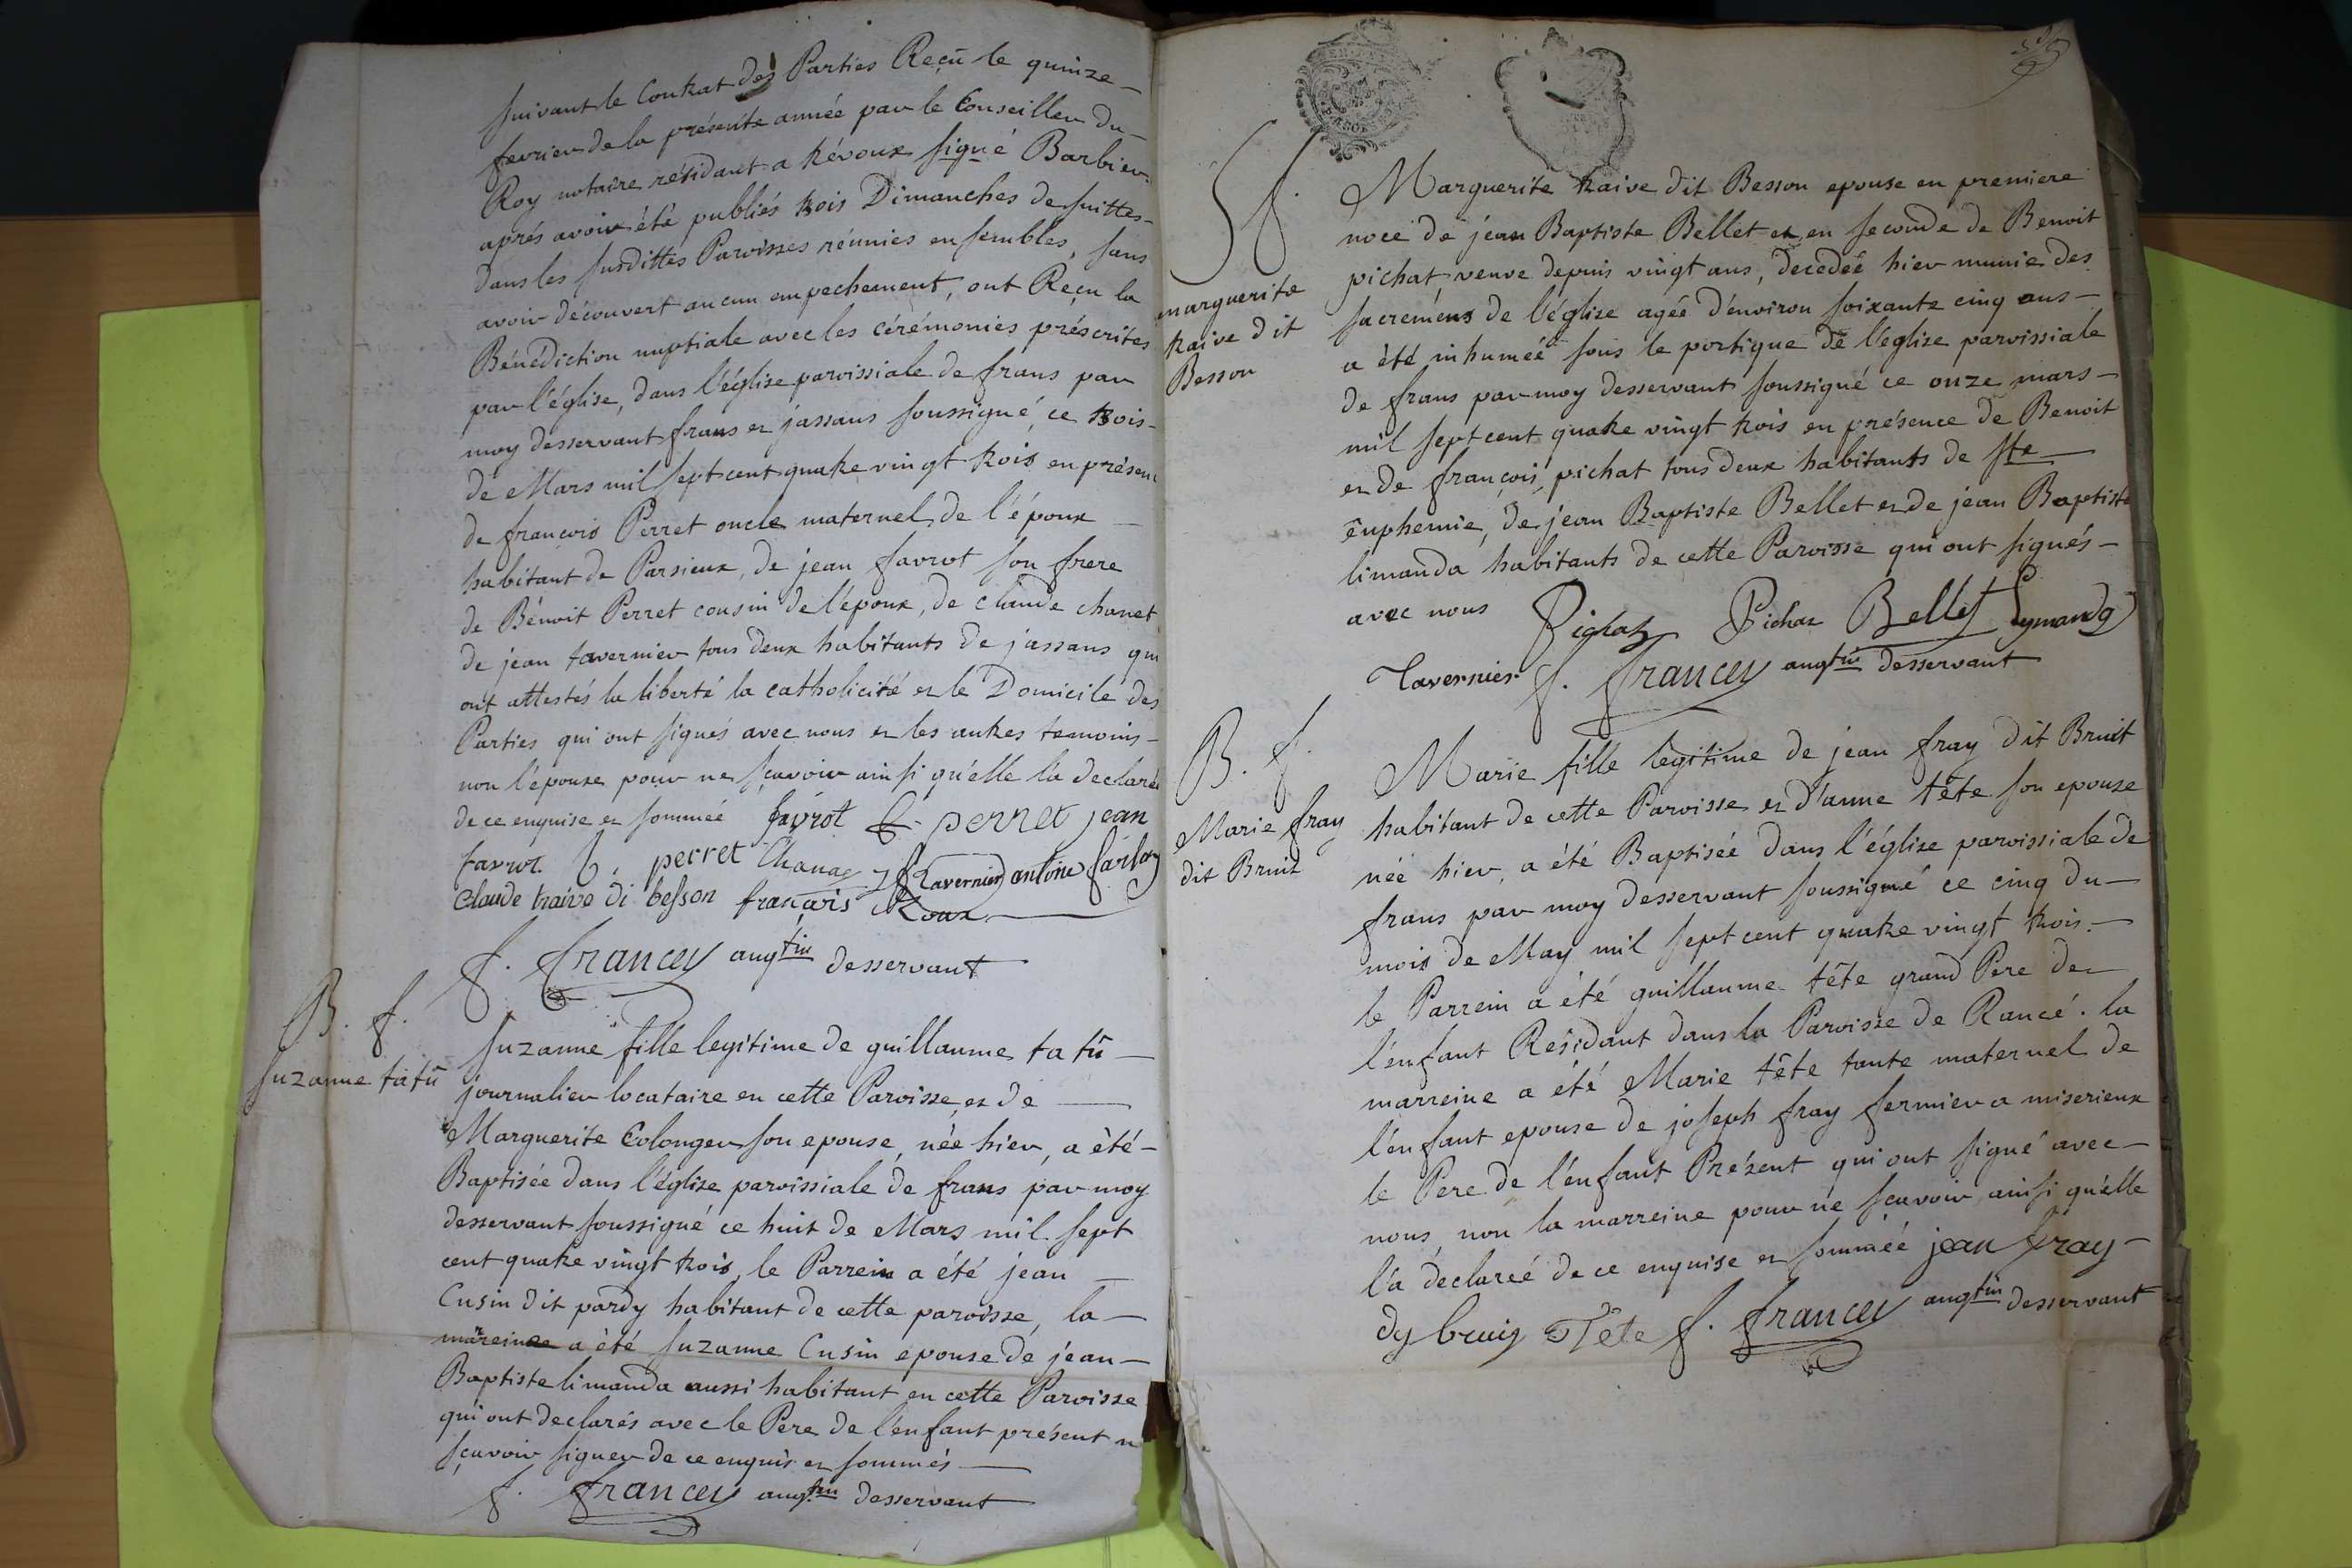 suivant le Contrat des Parties Reçu le quinze
fevrier de la présente année par le Conseiller du
Roy notaire résidant a trévoux signé Barbier.
aprés avoir été publiés trois Dimanches de suittes
dans les susdittes Paroisses réunies ensembles, sans
avoir découvert aucun empechement, ont Reçu la
Bénédiction nuptiale avec les cérémonies préscrites
par l'église, dans l'église paroissiale de frans par
moy desservant frans et jassans soussigné, ce trois
de Mars mil sept cent quatre vingt trois en présen
de francois Perret oncle maternel de l'époux
habitant de Parsieux, de jean favrot son frere
de Bénoit Perret cousin de l'époux, de claude chanet
de jean tavernier tous deux habitants de jassans qui
ont attestés la liberté la catholicité et le Domicile des
Parties qui ont signés avec nous et les autres temoins
non l'epouse pour ne sçavoir ainsi qu'elle l'a declaré
de ce enquise et sommée favrot perret jean
favrot. b. perret Chanay Tavernier antoine
Claude traive di besson françois Roux
f. francey augtin desservant
B. f.
Suzanne tatû
Suzanne fille legitime de guillaume tatû
journalier locataire en cette Paroisse, et de
Marguerite Colonger son epouse, née hier, a été
Baptisée dans l'église paroissiale de frans par moy
desservant soussigné ce huit de Mars mil sept
cent quatre vingt trois, le Parrein a été jean
Cusin dit pardy habitant de cette paroisse, la
marreine a été Suzanne Cusin epouse de jean
Baptiste limanda aussi habitant en cette Paroisse
qui ont declarés avec le Pere de l'enfant présent n
sçavoir signer de ce enquis et sommés
f. francey augtin desservant
Sf.
marguerite
traive dit
Besson
Marguerite traive dit Besson epouse en premiere
noce de jéan Baptiste Bellet et en seconde de Benoit
pichat, veuve depuis vingt ans, decedée hier munie des
sacremens de l'église agée d'environ soixante cinq ans
a été inhumée sous le portique de l'église paroissiale
de frans par moy desservant soussigné ce onze mars
mil sept cent quatre vingt trois en présence de Benoit
et de françois, pichat tous deux habitants de Ste
êuphemie, de jean Baptiste Bellet et de jean Baptiste
limanda habitants de cette Paroisse qui ont signés
avec nous Pichat Pichat Bellet Lymanda
Tavernier f. francey augtin desservant
B. f.
Marie fray
dit Bruit
Marie fille legitime de jean fray dit Bruit
habitant de cette Paroisse et d'anne tête son epouse
née hier, a été Baptisée dans l'église paroissiale de
frans par moy desservant soussigné ce cinq du
mois de May mil sept cent quatre vingt trois.
le Parrein a été guillaume tête grand Pere de
l'enfant Résidant dans la Paroisse de Rancé. la
marreine a été Marie tête tante maternel de
l'enfant epouse de joseph fray fermier a miserieux
le Pere de l'enfant Présent qui ont signé avec
nous non la marreine pour ne sçavoir ainsi qu'elle
l'a declareé de ce enquise et sommée jean fray
dy bruiy Tête f. francey augtin desservant